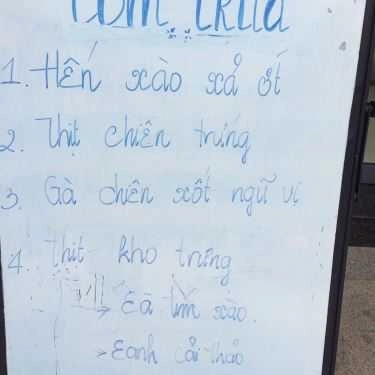 CƠM TRƯA
1. Hến xào xả ớt
2. Thịt chiên trứng
3. Gà chiên xốt ngũ vị
4. Thịt kho trứng
→ Cà tím xào.
→ Canh cải thảo